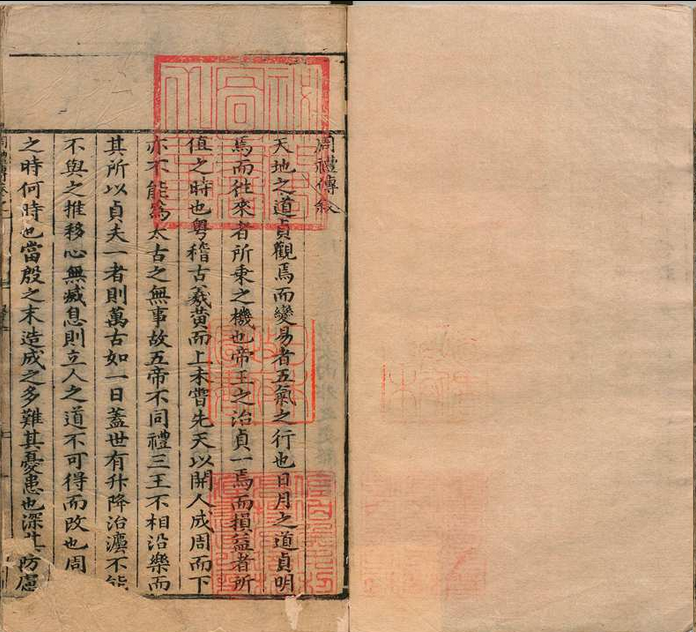 周禮傳敘
天地之道貞觀焉而變易者五氣之行也日月之道貞明
焉而往來者所乘之機也帝王之治貞一焉而損益者所
值之時也粵稽古羲黃而上未嘗先天以開人成周而下
亦不能爲太古之無事故五帝不同禮三王不相沿樂而
其所以貞夫一者則萬古如一日蓋世有升降治㵯不能
不與之推移心無臧息則立人之道不可得而改也周
之時何時也當殷之末造成之多難其憂患也深其防慮